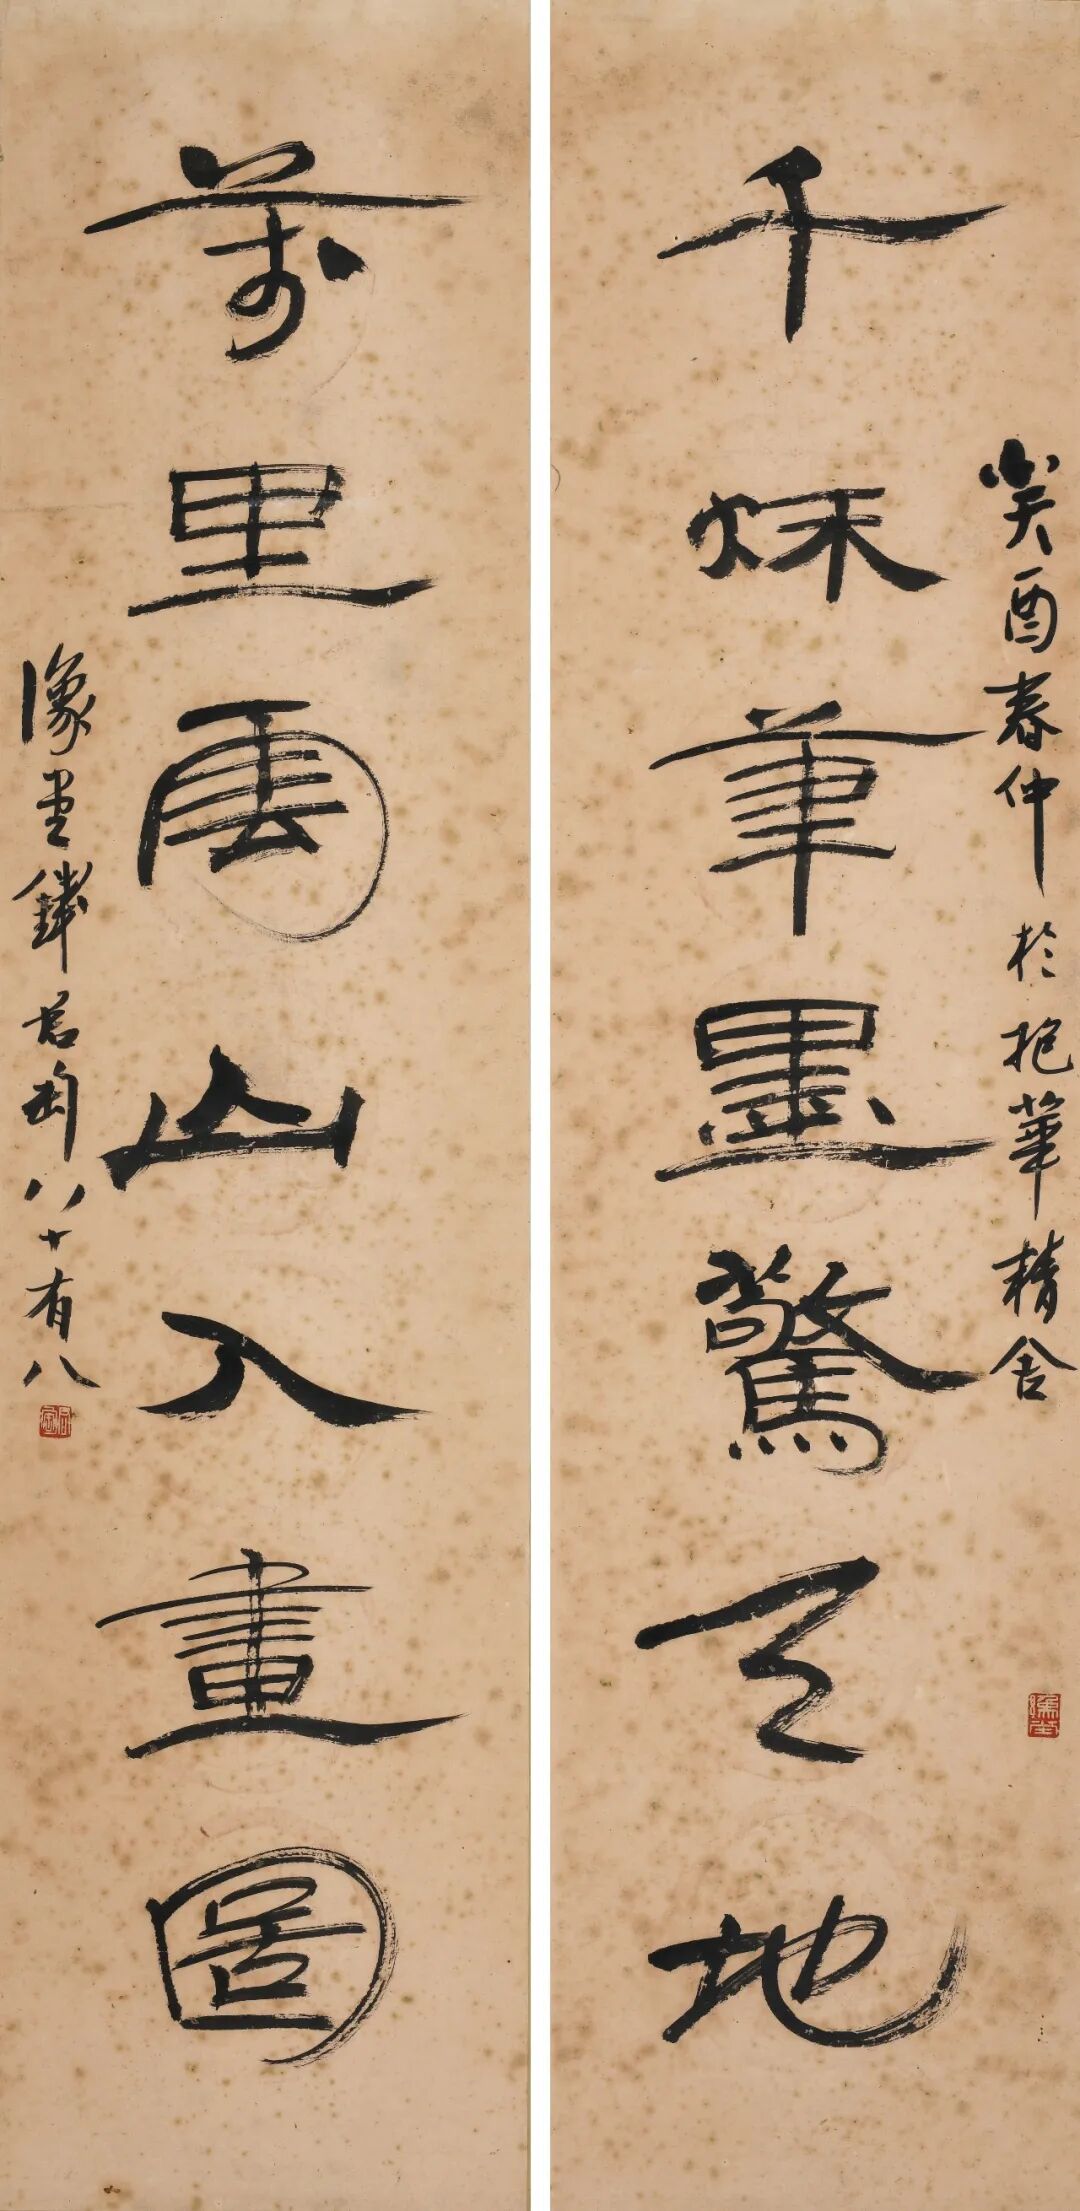 癸酉春仲於抱華精舍
千秌筆墨驚天地
萬里雲山入畫圖
豫堂錢君匋八十有八